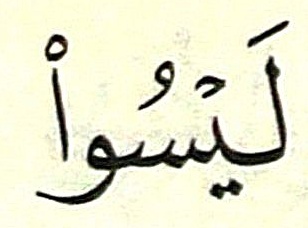 لَيْسُواْ